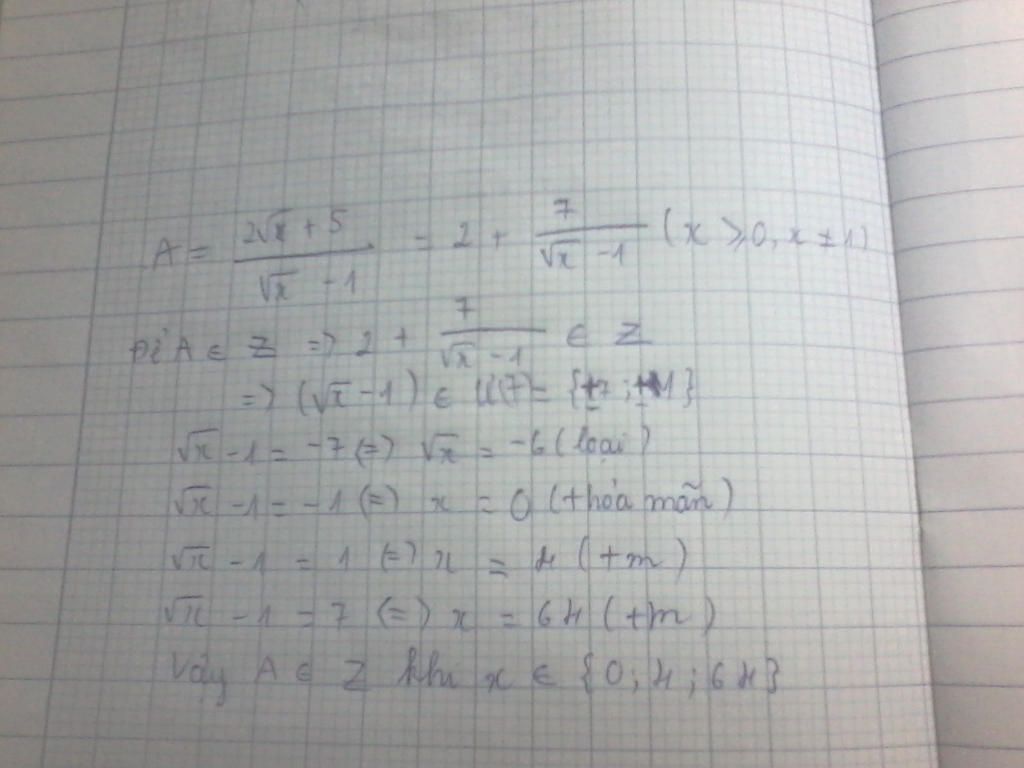 A = (2√x + 5)/(√x - 1) = 2 + 7/(√x - 1) (x ≥ 0, x ≠ 1)
Để A ∈ Z => 2 + 7/(√x - 1) ∈ Z
=> (√x - 1) ∈ Ư(7) = {±7; ±1}
√x - 1 = -7 (=) √x = -6 (loại)
√x - 1 = -1 (=) x = 0 (thỏa mãn)
√x - 1 = 1 (=) x = 4 (tm)
√x - 1 = 7 (=) x = 64 (tm)
Vậy A ∈ Z khi x ∈ {0; 4; 64}